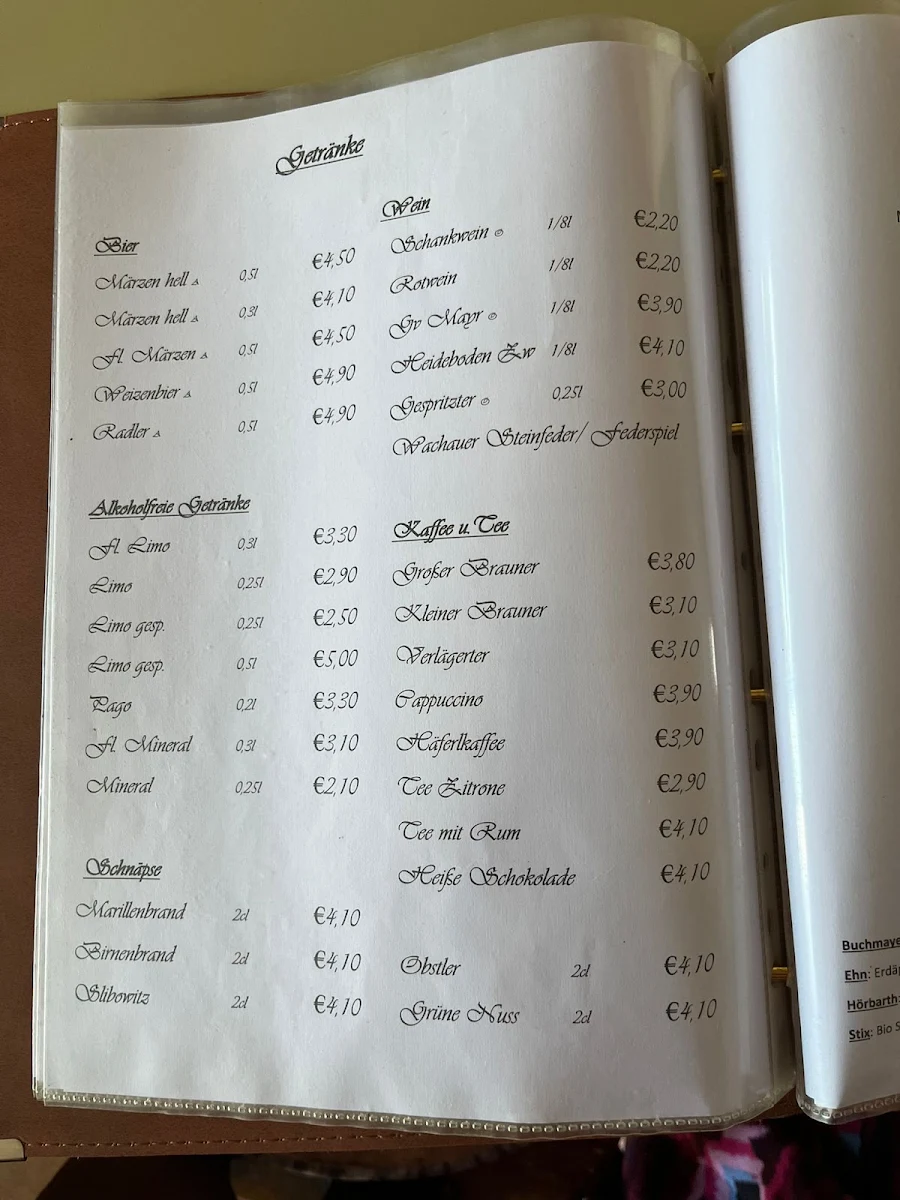 Getränke
Bier
Märzen hell A 0,5l €4,50
Märzen hell A 0,3l €4,10
Fl. Märzen A 0,5l €4,50
Weizenbier A 0,5l €4,90
Radler A 0,5l €4,90
Alkoholfreie Getränke
Fl. Limo 0,3l €3,30
Limo 0,25l €2,90
Limo gesp. 0,25l €2,50
Limo gesp. 0,5l €5,00
Pago 0,2l €3,30
Fl. Mineral 0,3l €3,10
Mineral 0,25l €2,10
Schnäpse
Marillenbrand 2cl €4,10
Birnenbrand 2cl €4,10
Slibowitz 2cl €4,10
Wein
Schankwein O 1/8l €2,20
Rotwein 1/8l €2,20
Gv Mayr O 1/8l €3,90
Heideboden Zw 1/8l €4,10
Gespritzter O 0,25l €3,00
Wachauer Steinfeder/ Federspiel
Kaffee u. Tee
Großer Brauner €3,80
Kleiner Brauner €3,10
Verlägerter €3,10
Cappuccino €3,90
Häferlkaffee €3,90
Tee Zitrone €2,90
Tee mit Rum €4,10
Heiße Schokolade €4,10
Obstler 2cl €4,10
Grüne Nuss 2cl €4,10
Buchmaye
Ehn: Erdä
Hörbarth:
Stix: Bio S